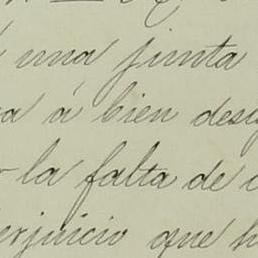 una junta
a á bien desig
la falta de
erjuicio que h